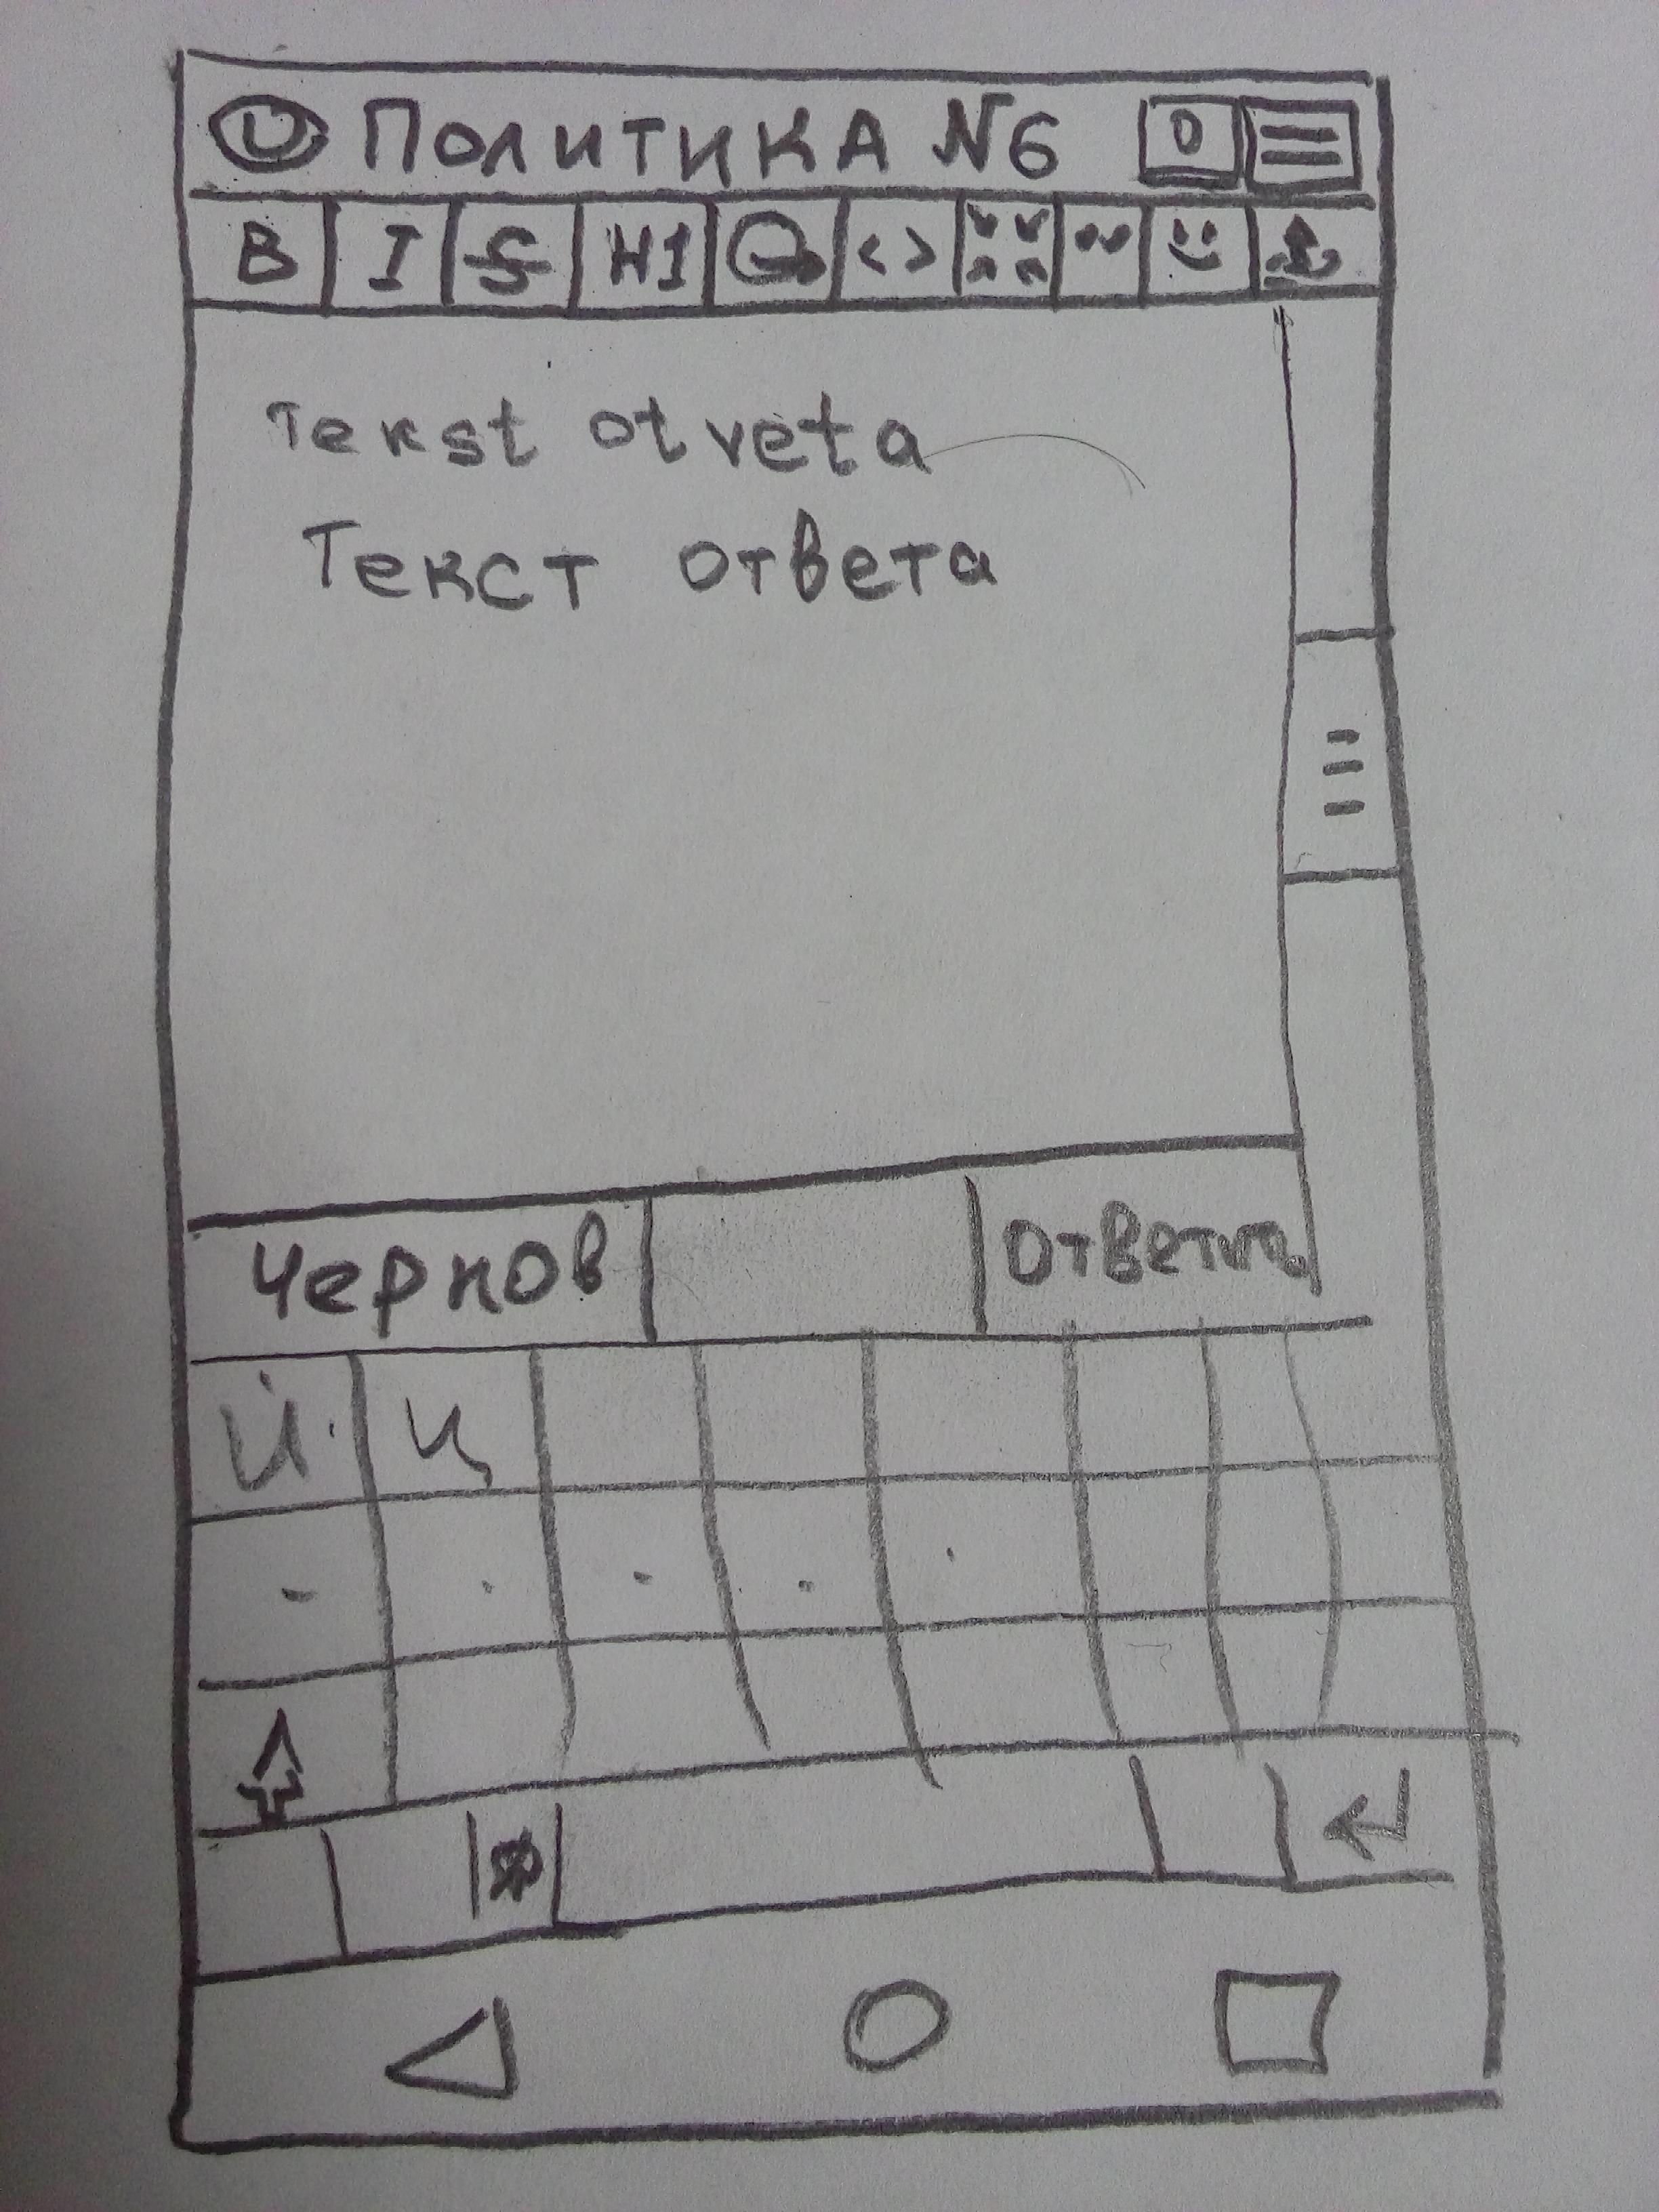 Политика N6 0
B I S H1 < >
Tekst otveta
Текст ответа
Чернов Ответить
Й Ц